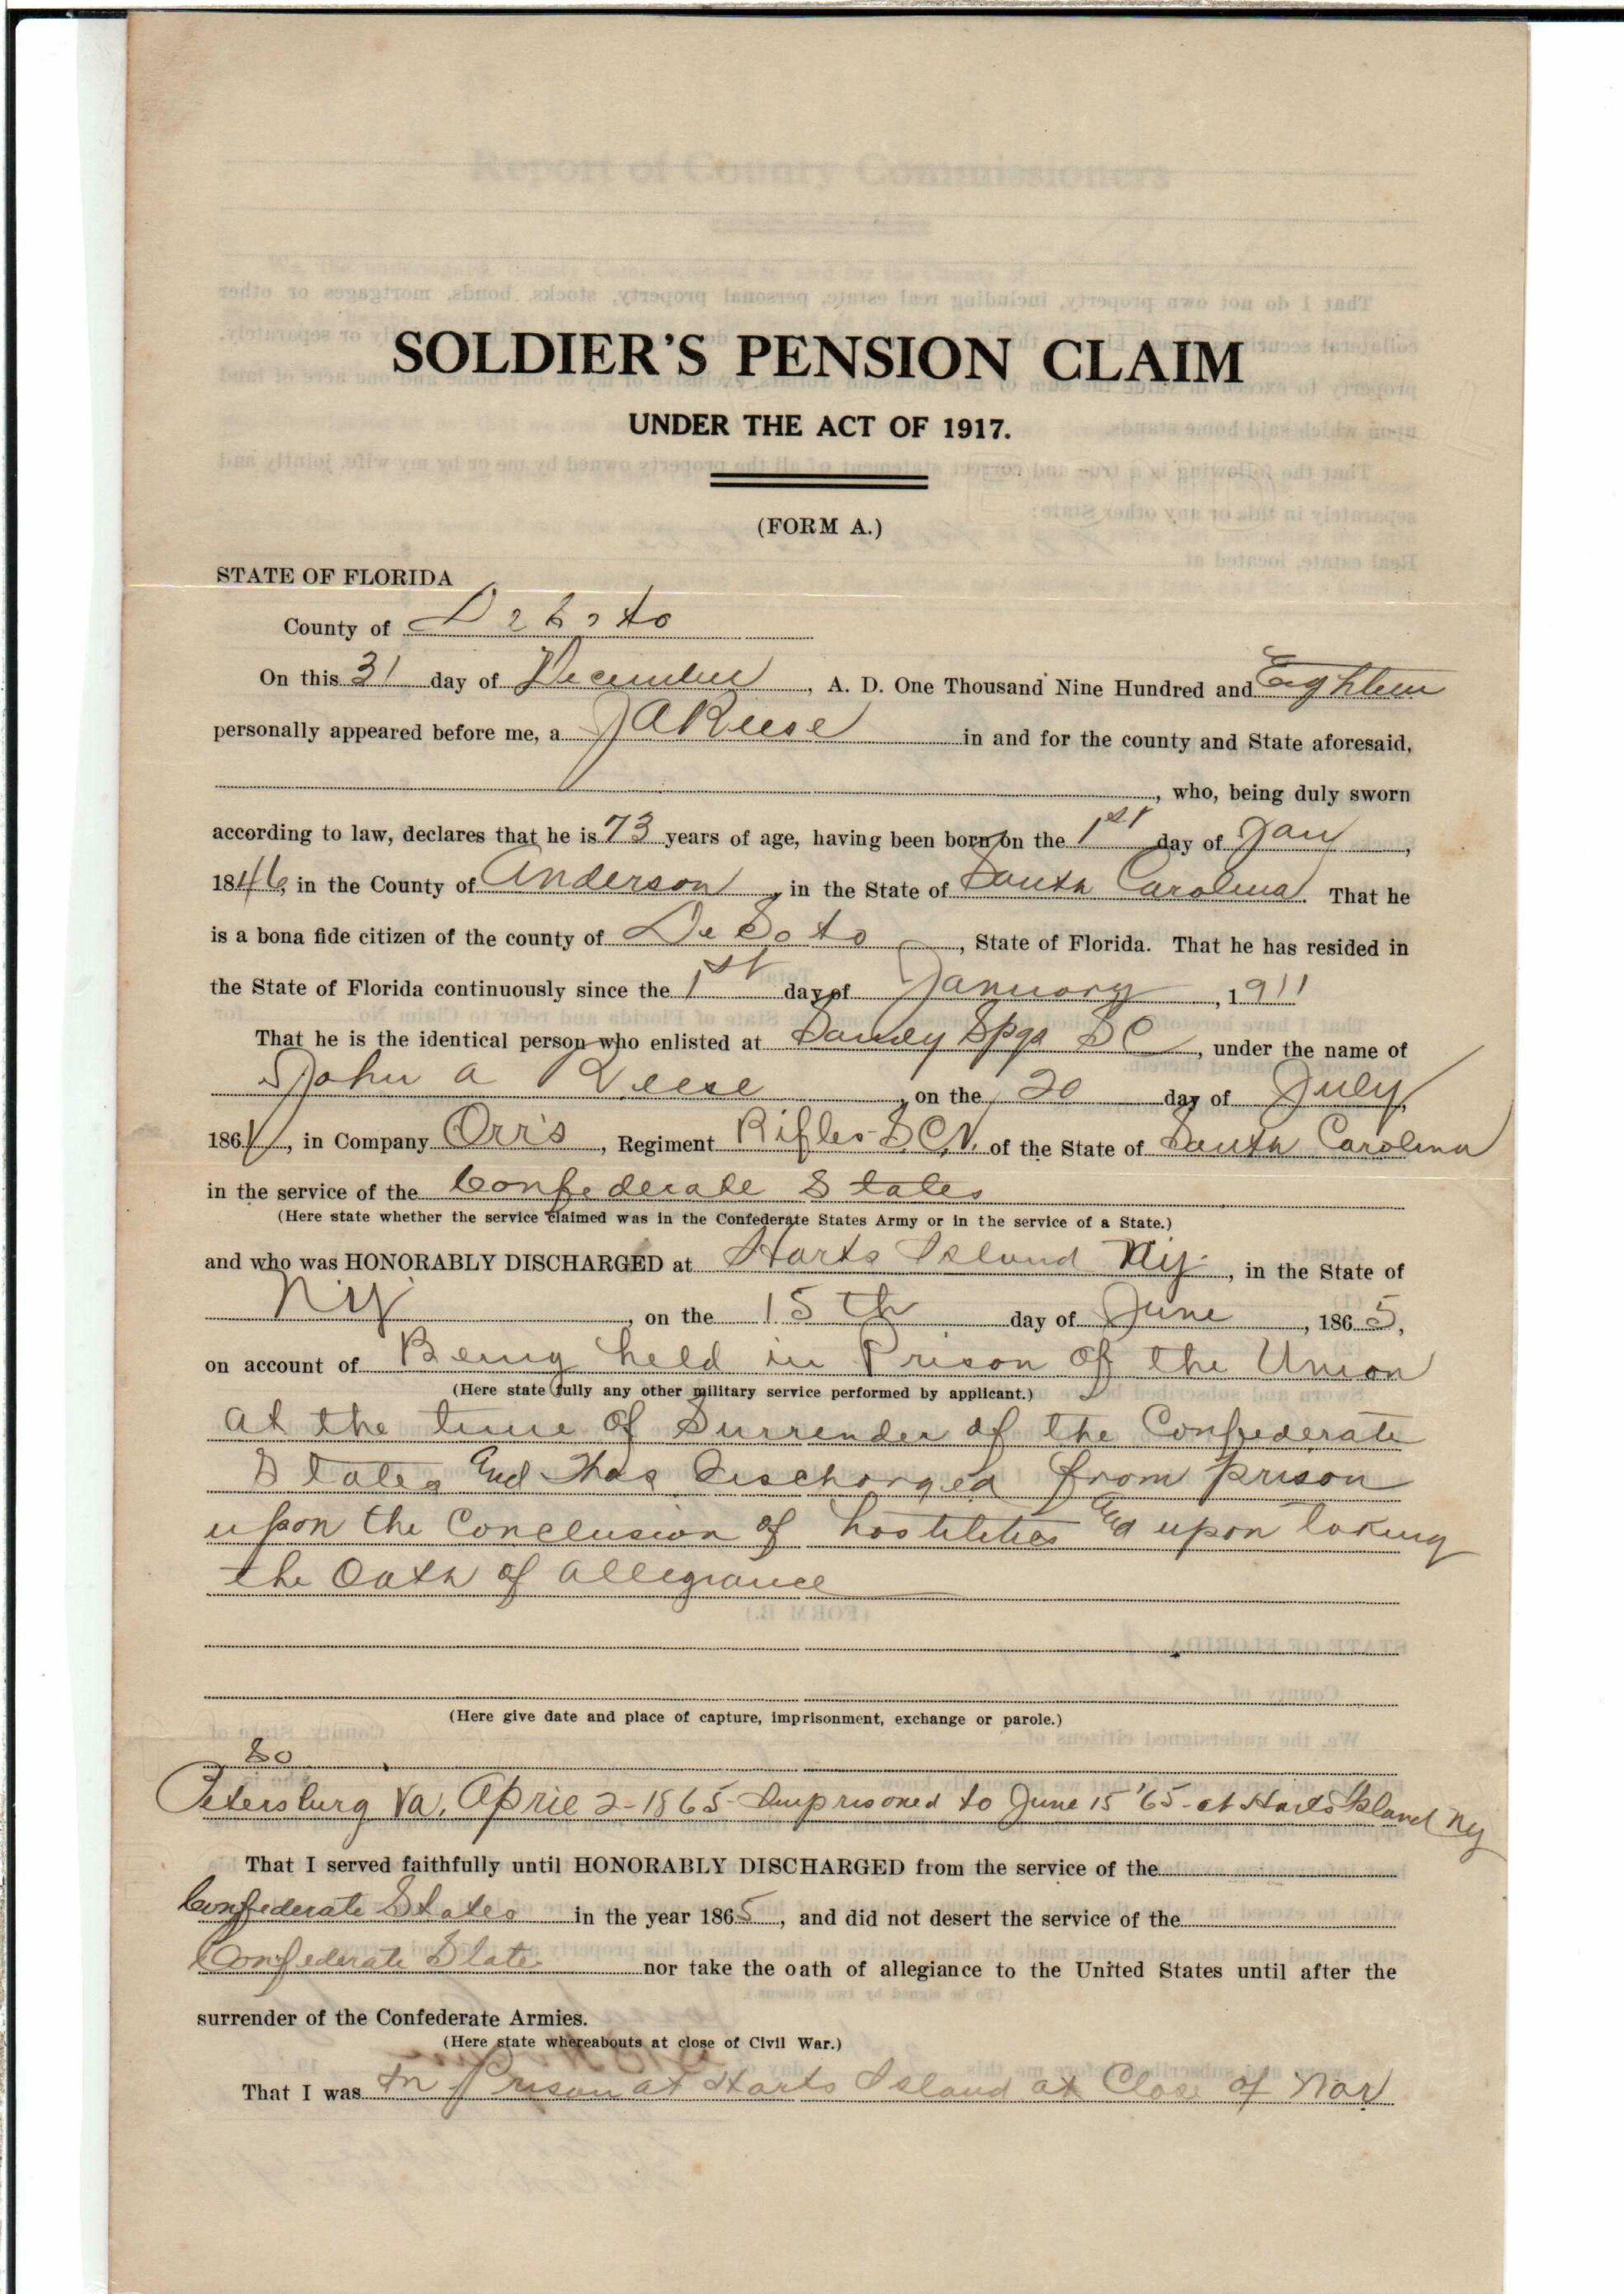 SOLDIER'S PENSION CLAIM
UNDER THE ACT OF 1917.
(FORM A.)
STATE OF FLORIDA
County of DeSoto
On this 31 day of December, A. D. One Thousand Nine Hundred and Eighteen
personally appeared before me, a J A Reese in and for the county and State aforesaid,
, who, being duly sworn
according to law, declares that he is 73 years of age, having been born on the 1st day of Jany,
1846, in the County of Anderson, in the State of South Carolina. That he
is a bona fide citizen of the county of DeSoto, State of Florida. That he has resided in
the State of Florida continuously since the 1st day of January, 1911
That he is the identical person who enlisted at Spgs S C, under the name of
John A Reese, on the 20 day of July,
186, in Company Orr's, Regiment Rifles S.C.V. of the State of South Carolina
in the service of the Confederate States
(Here state whether the service claimed was in the Confederate States Army or in the service of a State.)
and who was HONORABLY DISCHARGED at Harts Island NY, in the State of
NY, on the 15th day of June, 1865,
on account of Being held in Prison of the Union
(Here state fully any other military service performed by applicant.)
at the time of Surrender of the Confederate
States and Was Discharged from prison
upon the Conclusion of hostilities and upon taking
the Oath of allegiance
(Here give date and place of capture, imprisonment, exchange or parole.)
Petersburg Va, April 2-1865- Imprisoned to June 15 '65- at Harts Island NY
That I served faithfully until HONORABLY DISCHARGED from the service of the
Confederate States in the year 1865, and did not desert the service of the
Confederate State nor take the oath of allegiance to the United States until after the
surrender of the Confederate Armies.
(Here state whereabouts at close of Civil War.)
That I was In Prison at Harts Island at Close of War